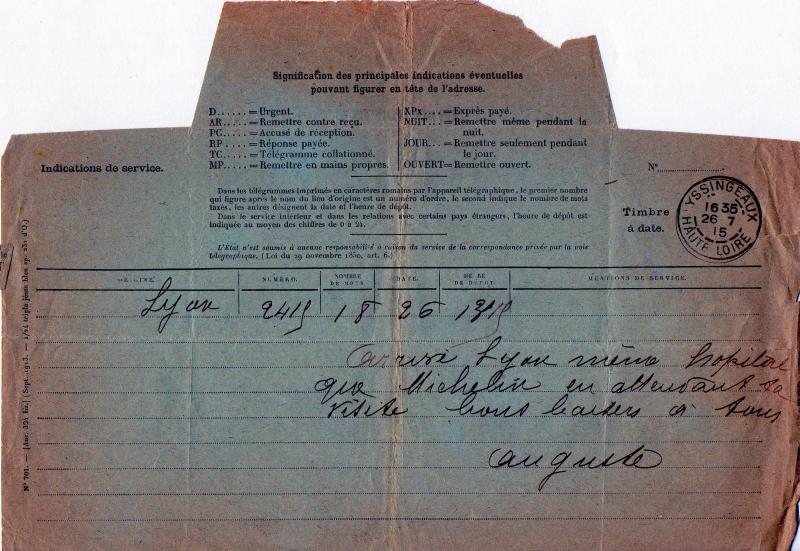 Signification des principales indications éventuelles
pouvant figurer en tête de l'adresse.
D...... = Urgent.
AR..... = Remettre contre reçu.
PC..... = Accusé de réception.
RP..... = Réponse payée.
TC..... = Télégramme collationné.
MP..... = Remettre en mains propres.
XPx.... = Exprès payé.
NUIT... = Remettre même pendant la
nuit.
JOUR... = Remettre seulement pendant
le jour.
OUVERT = Remettre ouvert.
Indications de service.
N°
Dans les télégrammes imprimés en caractères romains par l'appareil télégraphique, le premier nombre
qui figure après le nom du lieu d'origine est un numéro d'ordre, le second indique le nombre de mots
taxés, les autres désignent la date et l'heure de dépôt.
Dans le service intérieur et dans les relations avec certains pays étrangers, l'heure de dépôt est
indiquée au moyen des chiffres de 0 à 24.
Timbre
à date.
YSSINGEAUX
16 35
26 7
15
HAUTE LOIRE
L'État n'est soumis à aucune responsabilité à raison du service de la correspondance privée par la voie
télégraphique. (Loi du 29 novembre 1850, art. 6.)
ORIGINE
NUMÉRO.
NOMBRE
DE MOTS
DATE.
DE DÉPOT.
MENTIONS DE SERVICE.
Lyon 2415 18 26 1315
arrivé Lyon même hopital
que Michelin en attendant ta
visite bons baisers à tous
auguste
N° 701. — (Anc. 324 bis.) (Sept. 1913.